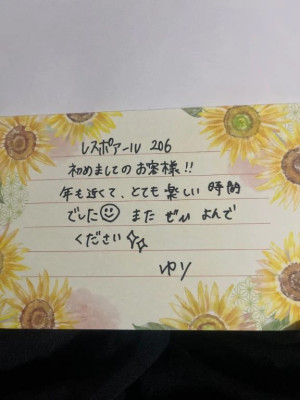 レスポアール 206
初めましてのお客様!!
年も近くて、とても楽しい時間
でした☺ また ぜひ よんで
ください✨
ゆり